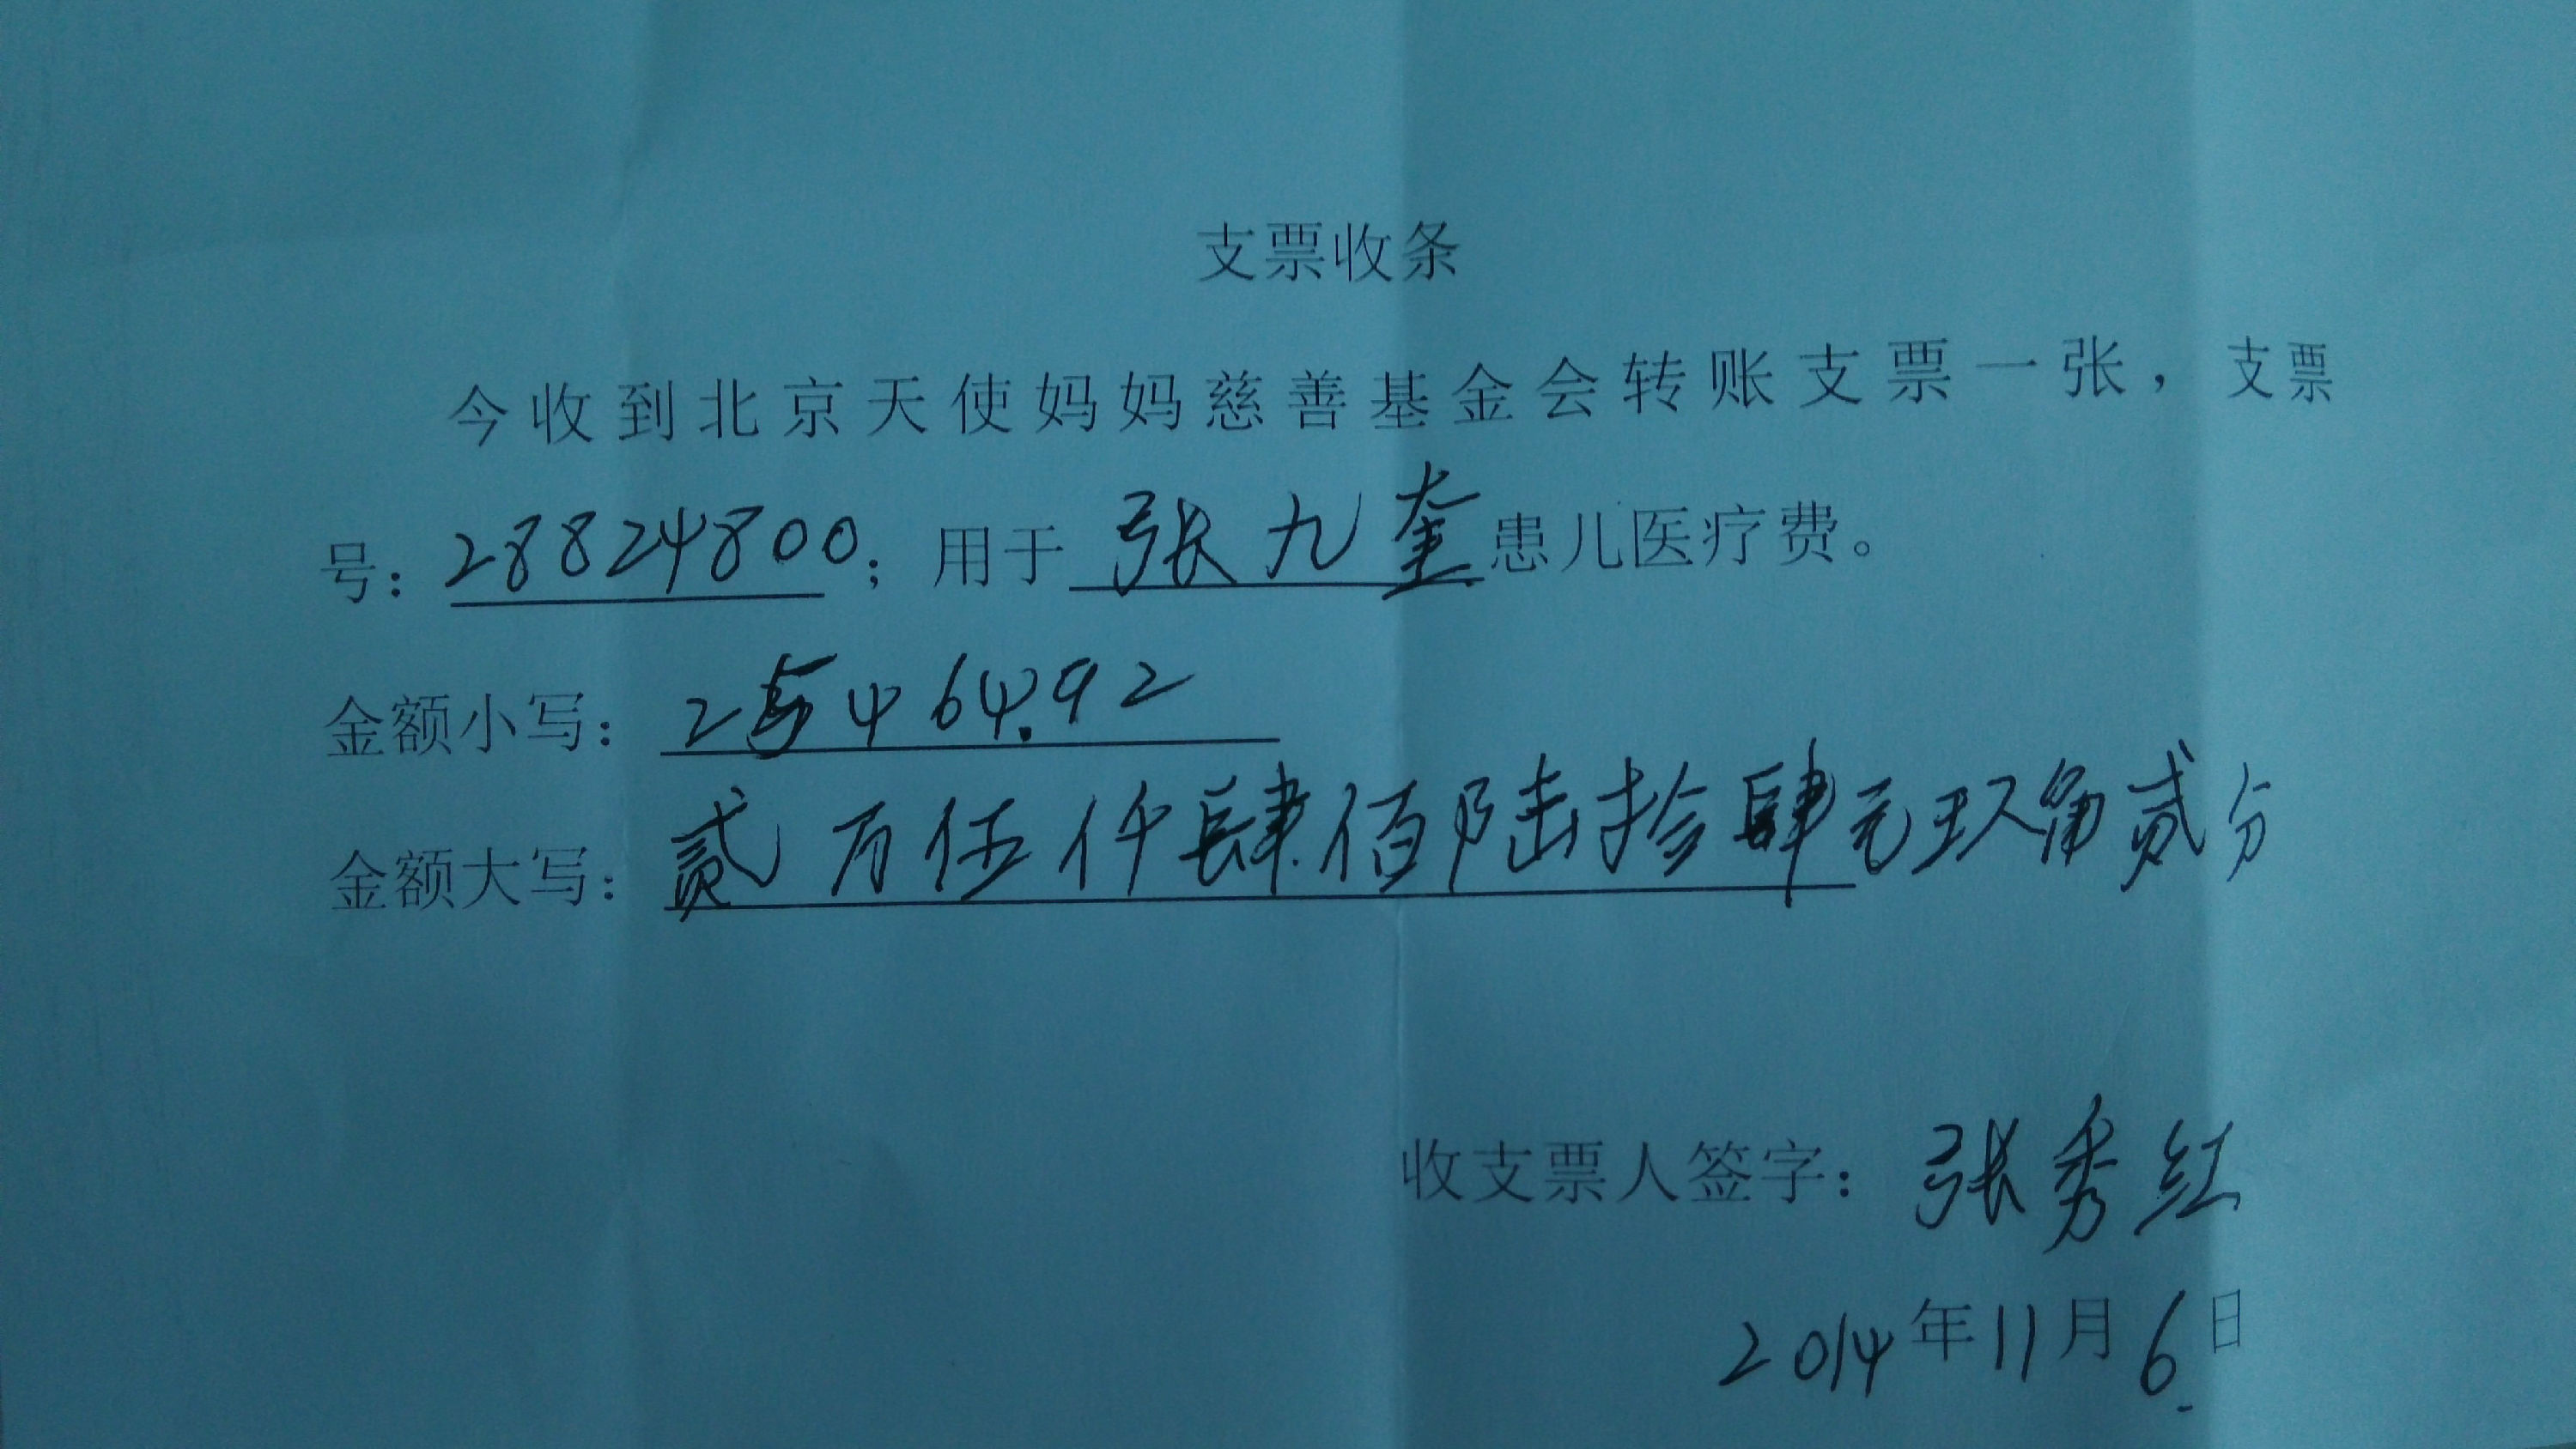 支票收条
今收到北京天使妈妈慈善基金会转账支票一张，支票
号：28824800；用于张九奎患儿医疗费。
金额小写：25464.92
金额大写：贰万伍仟肆佰陆拾肆元玖角贰分
收支票人签字：张秀红
2014年11月6日